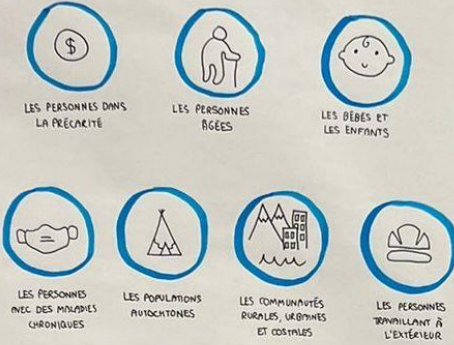 $
LES PERSONNES DANS
LA PRÉCARITÉ
LES PERSONNES
ÂGÉES
LES BÉBÉS ET
LES ENFANTS
LES PERSONNES
AVEC DES MALADIES
CHRONIQUES
LES POPULATIONS
AUTOCHTONES
LES COMMUNAUTÉS
RURALES, URBAINES
ET COSTALES
LES PERSONNES
TRAVAILLANT À
L'EXTÉRIEUR